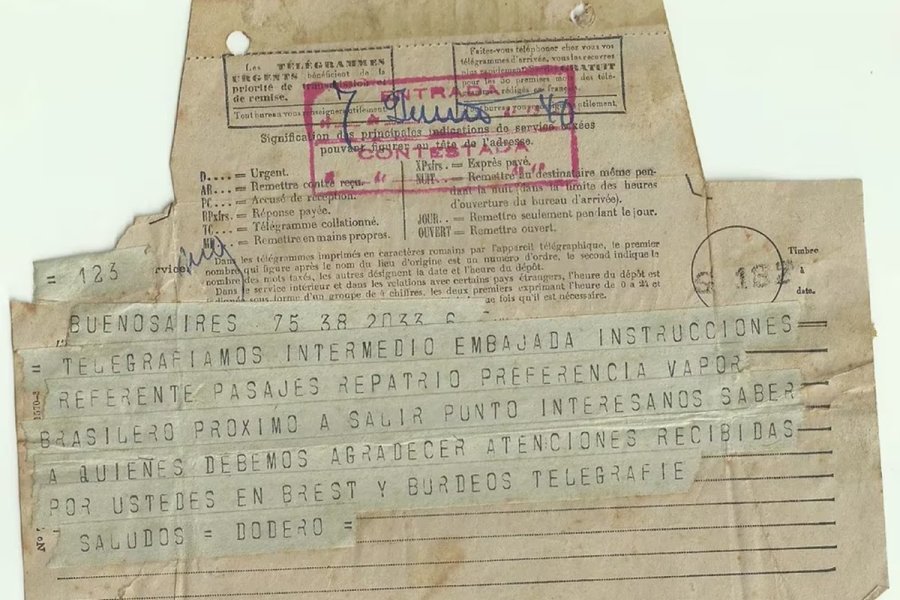 Les TÉLÉGRAMMES
URGENTS bénéficient de la
priorité de transmission et
de remise.
Tout bureau vous renseignera utilement
Faites-vous téléphoner chez vous vos
télégrammes d'arrivée, vous les recevrez
plus rapidement GRATUIT
pour les 50 premiers mots des télé-
grammes rédigés en français
Tout bureau vous utilement.
ENTRADA
7 Junio 40
CONTESTADA
Signification des principales indications de service taxées
pouvant figurer en tête de l'adresse.
D.... = Urgent.
AR... = Remettre contre reçu.
PC... = Accusé de réception.
RPxfrs. = Réponse payée.
TC... = Télégramme collationné.
MP... = Remettre en mains propres.
XPxfrs. = Exprès payé.
NUIT.. = Remettre au destinataire même pen-
dant la nuit (dans la limite des heures
d'ouverture du bureau d'arrivée).
JOUR.. = Remettre seulement pendant le jour.
OUVERT = Remettre ouvert.
Dans les télégrammes imprimés en caractères romains par l'appareil télégraphique, le premier
nombre qui figure après le nom du lieu d'origine est un numéro d'ordre, le second indique le
nombre des mots taxés, les autres désignent la date et l'heure du dépôt.
Dans le service intérieur et dans les relations avec certains pays étrangers, l'heure du dépôt est
sous forme d'un groupe de 4 chiffres, les deux premiers exprimant l'heure de 0 à 24 et
que fois qu'il est nécessaire.
Timbre
à
date.
= 123
BUENOSAIRES 75 38 2033 6
= TELEGRAFIAMOS INTERMEDIO EMBAJADA INSTRUCCIONES
REFERENTE PASAJES REPATRIO PREFERENCIA VAPOR
BRASILERO PROXIMO A SALIR PUNTO INTERESANOS SABER
A QUIENES DEBEMOS AGRADECER ATENCIONES RECIBIDAS
POR USTEDES EN BREST Y BURDEOS TELEGRAFIE
SALUDOS = DODERO =
No